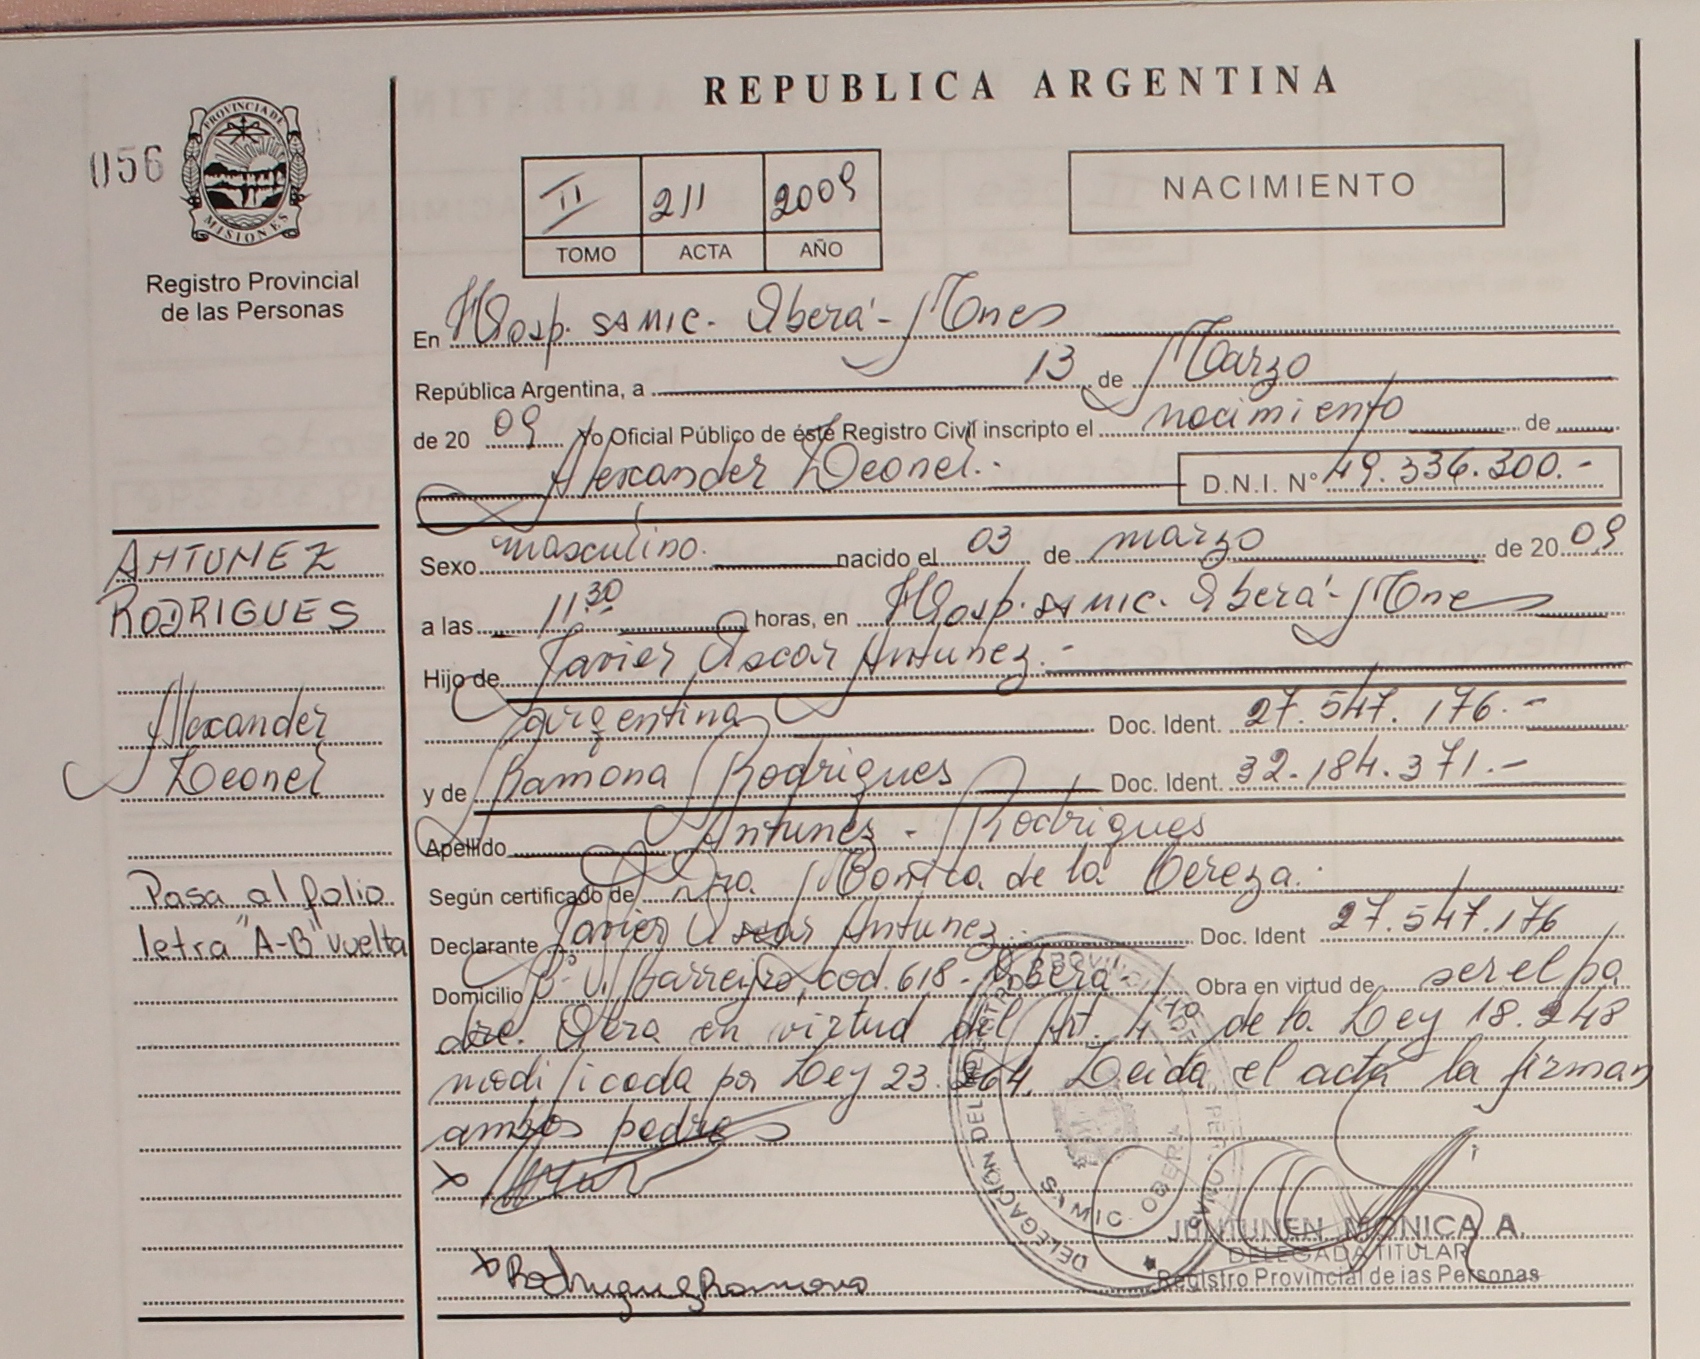 REPUBLICA ARGENTINA
056
PROVINCIA DE
MISIONES
Registro Provincial
de las Personas
II 211 2009
TOMO ACTA AÑO
NACIMIENTO
En Hosp. SAMIC. Oberá - Mones
República Argentina, a 13 de Marzo
de 20 09 Yo Oficial Público de éste Registro Civil inscripto el nacimiento de
Alexander Leonel.- D.N.I. Nº 49.336.300.-
Sexo masculino. nacido el 03 de marzo de 20 09
a las 11 30 horas, en Hosp. SAMIC. Oberá - Mones
Hijo de Javier Oscar Antunez.-
argentina Doc. Ident. 27.547.176.-
y de Ramona Rodrigues Doc. Ident. 32.184.371.-
Apellido Antunez - Rodrigues
Según certificado de Dra. Monica de la Cereza.
Declarante Javier Oscar Antunez. Doc. Ident 27.547.176
Domicilio Bº V. Barreiro, cod. 618 - Oberá - Obra en virtud de ser el pa
dre. Obra en virtud del Art. 4to de la Ley 18.248
modificada por Ley 23.264. Leida el acta la firman
ambos padres
x
x Rodrigues Ramona
ANTUNEZ
RODRIGUES
Alexander
Leonel
Pasa al folio
letra "A-B" vuelta
DELEGACIÓN DEL REGISTRO PROVINCIAL DE LAS PERSONAS
SAMIC - OBERÁ
JUNTUNEN, MONICA A.
DELEGADA TITULAR
Registro Provincial de las Personas